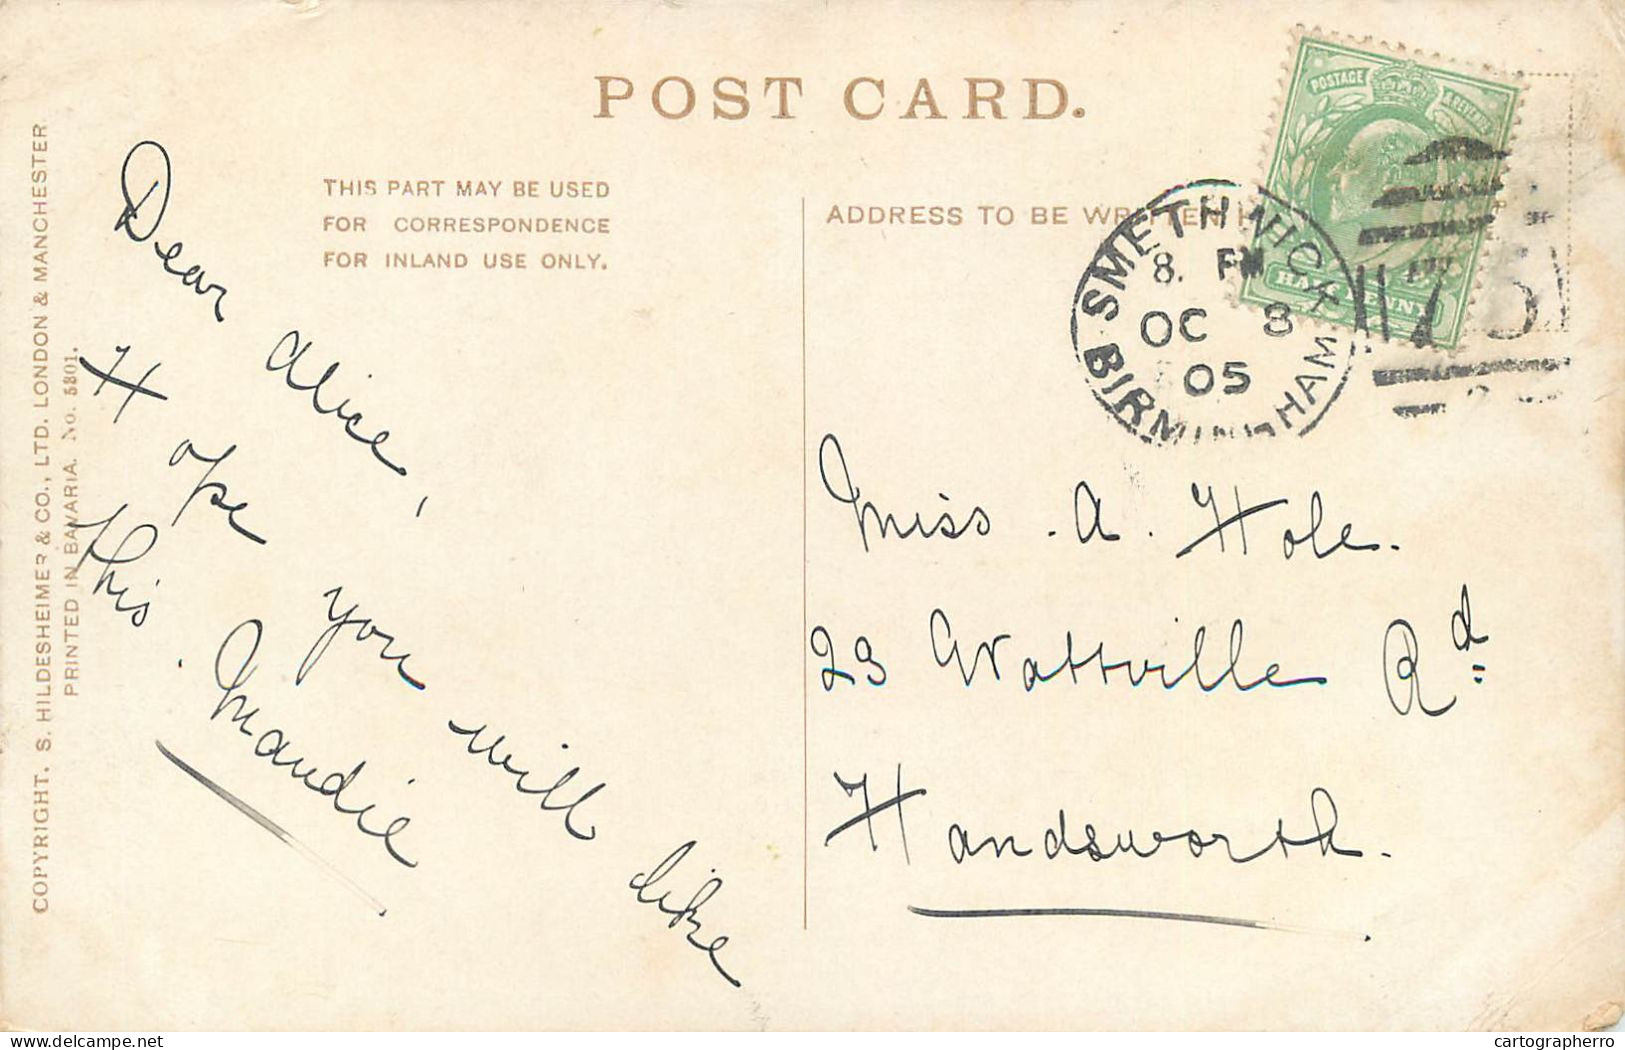 POST CARD.
THIS PART MAY BE USED
FOR CORRESPONDENCE
FOR INLAND USE ONLY.
ADDRESS TO BE WRITTEN
COPYRIGHT. S. HILDESHEIMER & CO., LTD. LONDON & MANCHESTER
PRINTED IN BAVARIA. No. 5301.
POSTAGE & REVENUE
HALF PENNY
SMETHWICK
8. PM
OC 8
05
BIRMINGHAM
75
Dear Alice,
Hope you will like
this.
Maudie
Miss. A. Hole.
23 Wattville Rd
Handsworth.
www.delcampe.net
cartographerro